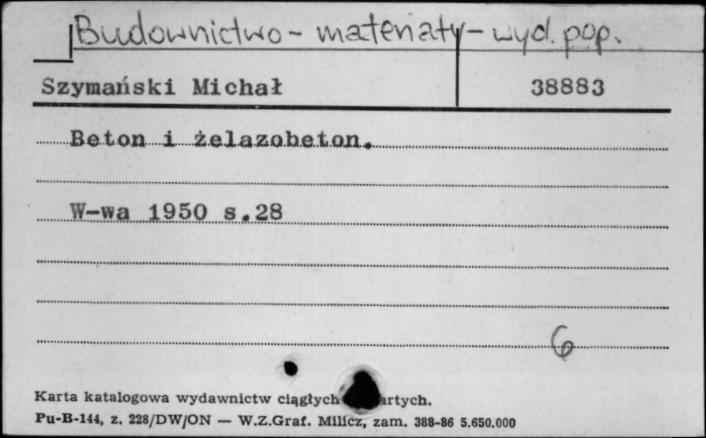 Budownictwo - materiały - wyd. pop.
Szymański Michał 38883
Beton i żelazobeton.
W-wa 1950 s.28
6
Karta katalogowa wydawnictw ciągłych artych.
Pu-B-144, z. 228/DW/ON — W.Z.Graf. Milicz, zam. 388-86 5.650.000